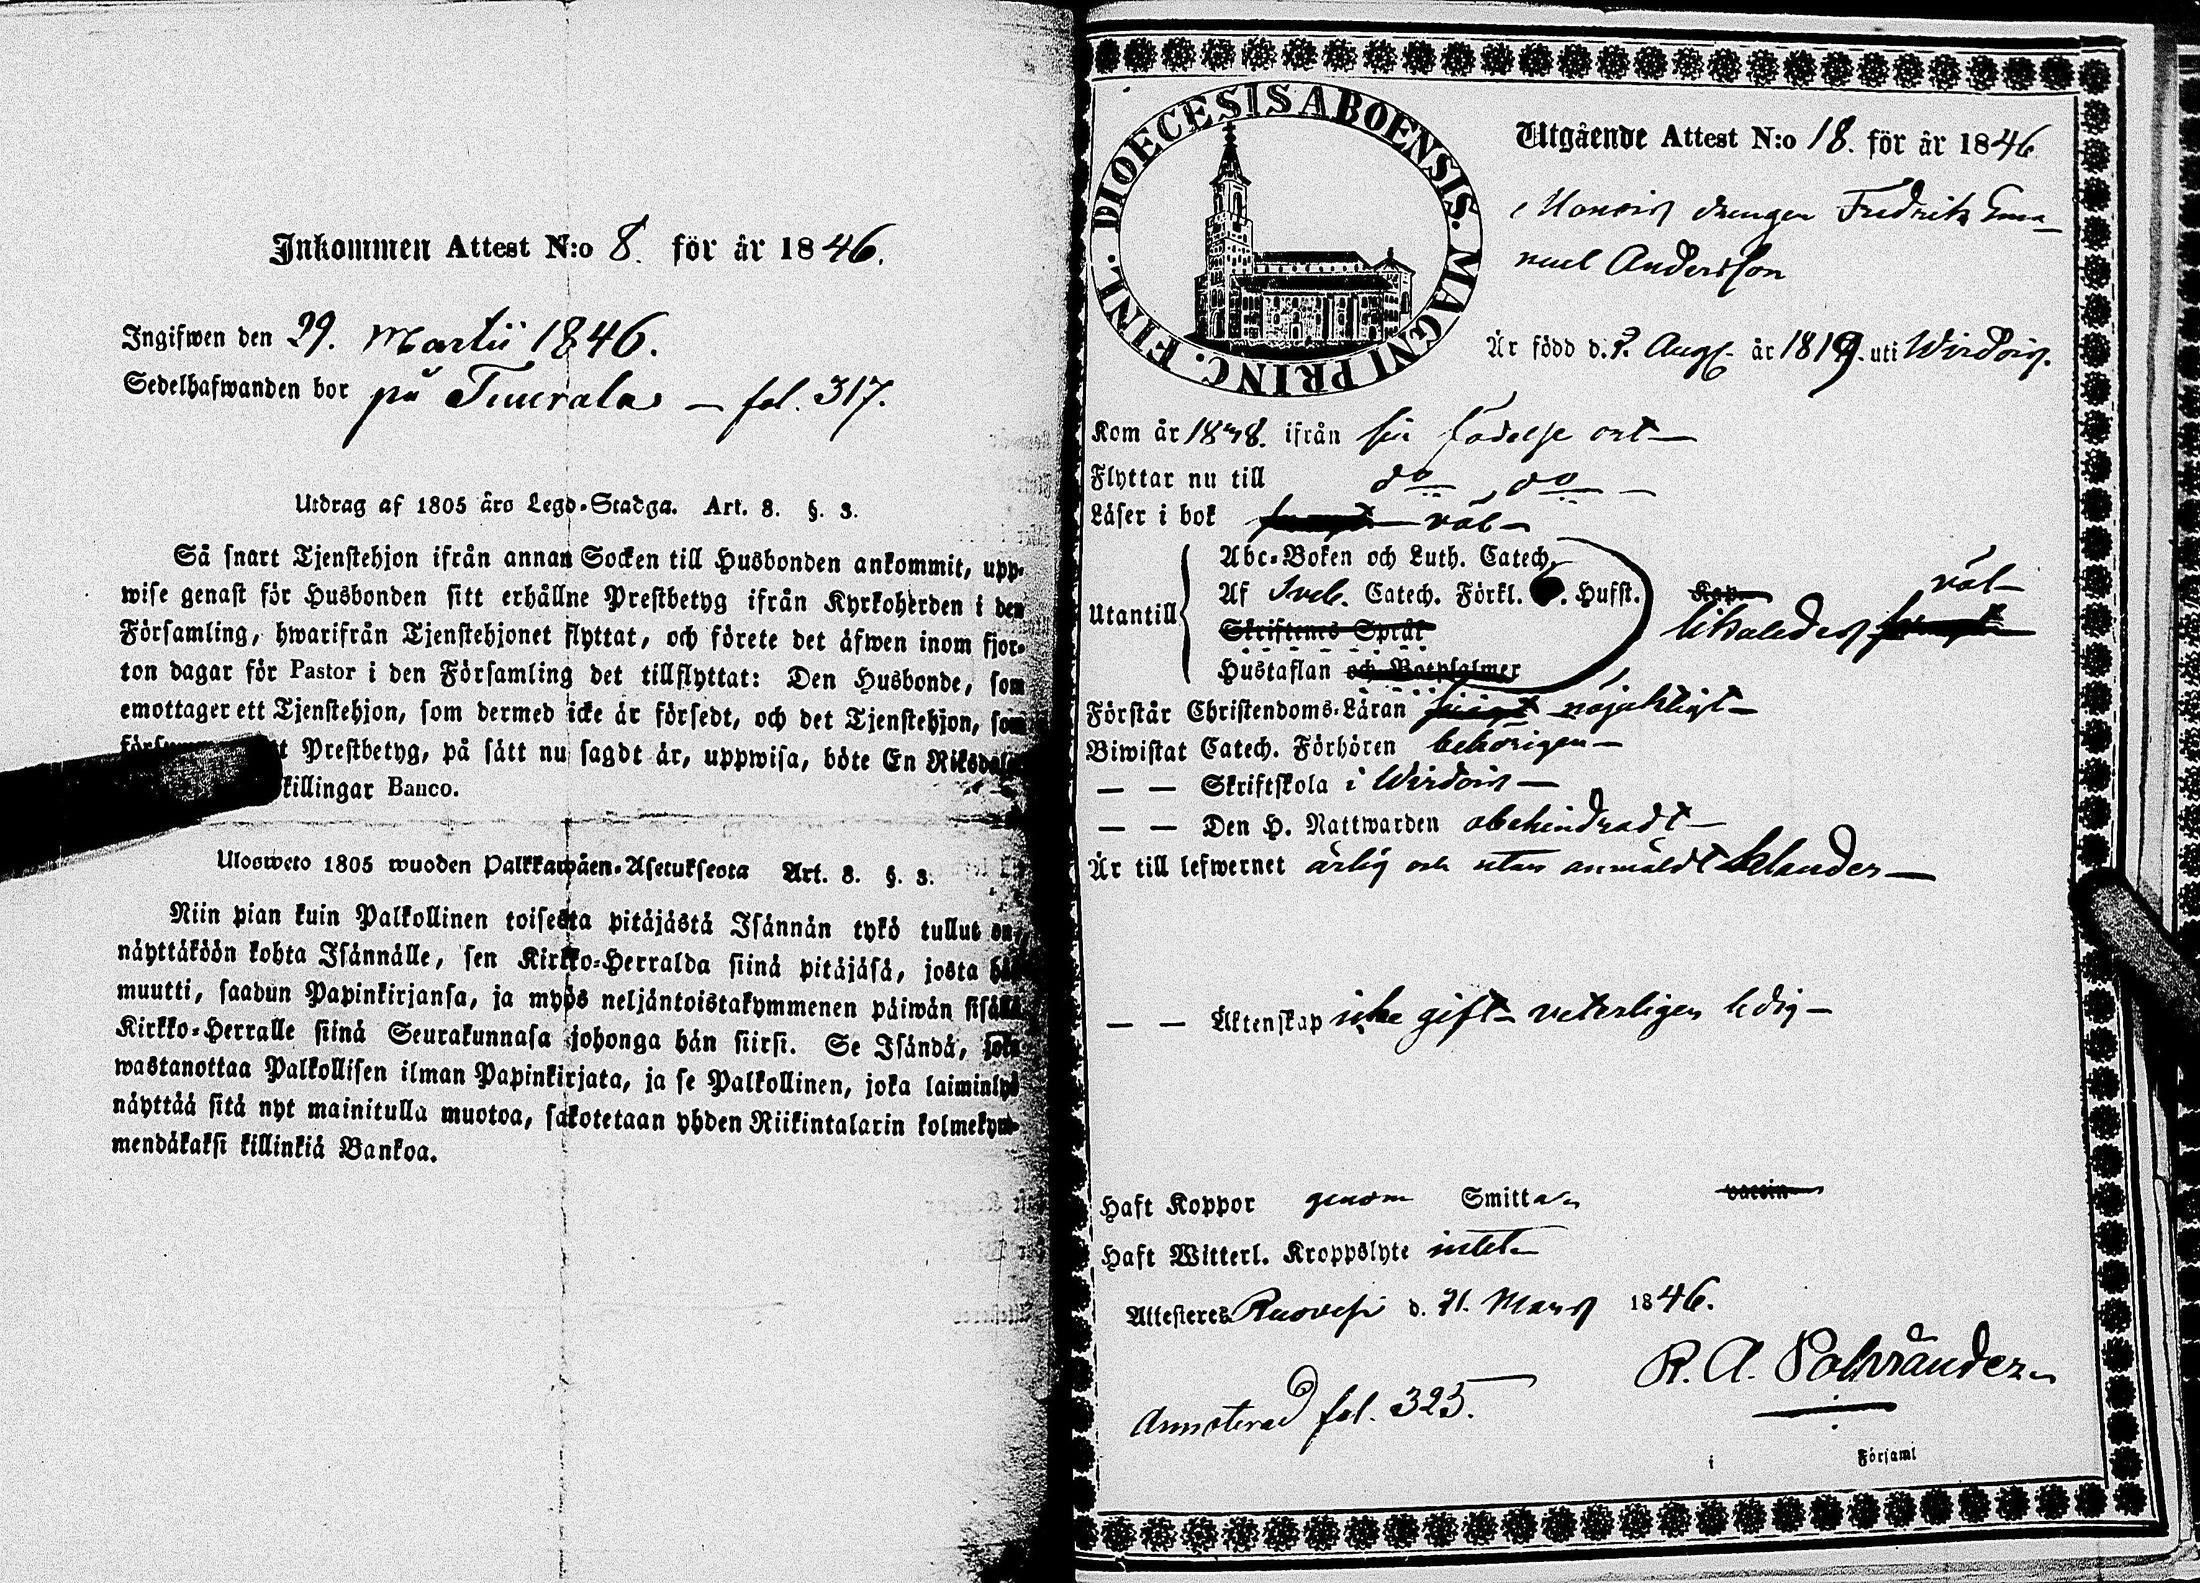 Inkommen Attest N:o 8. för år 1846.
Ingifwen den 29. Martii 1846.
Sedelhafwanden bor på Tuurala – fol. 317.
Utdrag af 1805 års Lego-Stadga. Art. 8. §. 3.
Så snart Tjenstehjon ifrån annan Socken till Husbonden ankommit, upp-
wise genast för Husbonden sitt erhållne Prestbetyg ifrån Kyrkoherden i den
Församling, hwarifrån Tjenstehjonet flyttat, och förete det äfwen inom fjor-
ton dagar för Pastor i den Församling det tillflyttat: Den Husbonde, som
emottager ett Tjenstehjon, som dermed icke är försedt, och det Tjenstehjon, som
Prestbetyg, på sätt nu sagdt är, uppwisa, böte En Riksdaler
killingar Banco.
Ulosweto 1805 wuoden Palkkawäen-Asetuksesta Art. 8. §. 3.
Niin pian kuin Palkollinen toisesta pitäjästä Isännän tykö tullut on,
näyttäköön kohta Isännälle, sen Kirkko-Herralda siinä pitäjäsä, josta hän
muutti, saadun Papinkirjansa, ja myös neljäntoistakymmenen päiwän sisällä
Kirkko-Herralle siinä Seurakunnasa johonga hän siirsi. Se Isändä, joka
wastanottaa Palkollisen ilman Papinkirjata, ja se Palkollinen, joka laiminlyö
näyttää sitä nyt mainitulla muotoa, sakotetaan yhden Riikintalarin kolmekym-
mendäkaksi killinkiä Bankoa.
DIOECESIS ABOENSIS. MAGNI PRINC. FINL.
Utgående Attest N:o 18. för år 1846
drengen Fredrik Ema-
nuel Andersson
Är född d. 2. Aug. år 1819. uti Wirdois.
Kom år 18 8. ifrån sin födelse ort –
Flyttar nu till do do –
Läser i bok väl –
Utantill
Abc-Boken och Luth. Catech.
Af Sveb. Catech. Förkl. Hufst.
Skriftenes Språk
Hustaflan och Botpsalmer
Kap.
likaledes väl –
Förstår Christendoms-Läran nöjaktigt –
Biwistat Catech. Förhören behörigen –
— — Skriftskola i Wirdois –
— — Den H. Nattwarden obehindradt –
Är till lefwernet ärlig och utan anmäldt klander –
— — Äktenskap icke gift – veterligen ledig –
Haft Koppor genom Smittan vaccin
Haft Witterl. Kroppslyte intet –
Attesteres Ruovesi d. 21. Mars 1846.
R. A. Polviander
Annoterad fol. 325.
i Församl